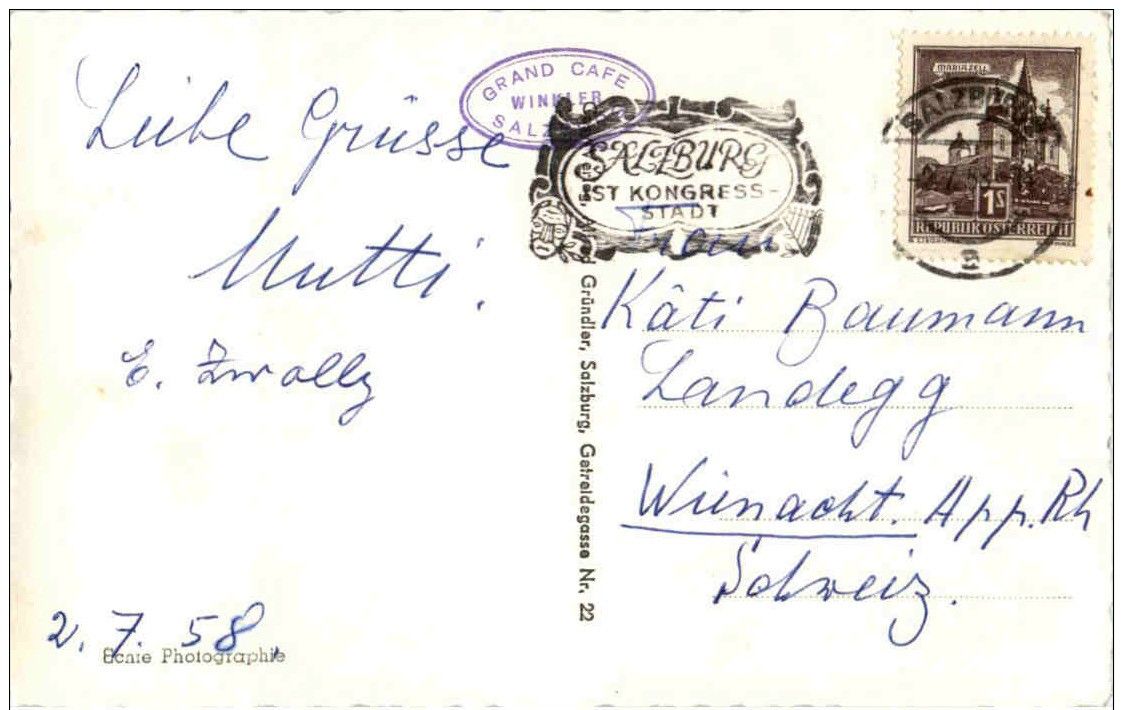 Liebe Grüsse
Mutti.
E. Zwolly
2. 7. 58.
Echte Photographie
GRAND CAFE
WINKLER
SALZ
SALZBURG
IST KONGRESS-
STADT
Gründler, Salzburg, Getreidegasse Nr. 22
MARIAZELL
1S
REPUBLIK ÖSTERREICH
SALZBURG
Frau
Käti Baumann
Landegg
Wienacht. App. Rh
Schweiz.